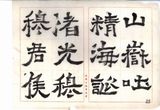 山嶽吐
精海
渚光穆
穆君侯